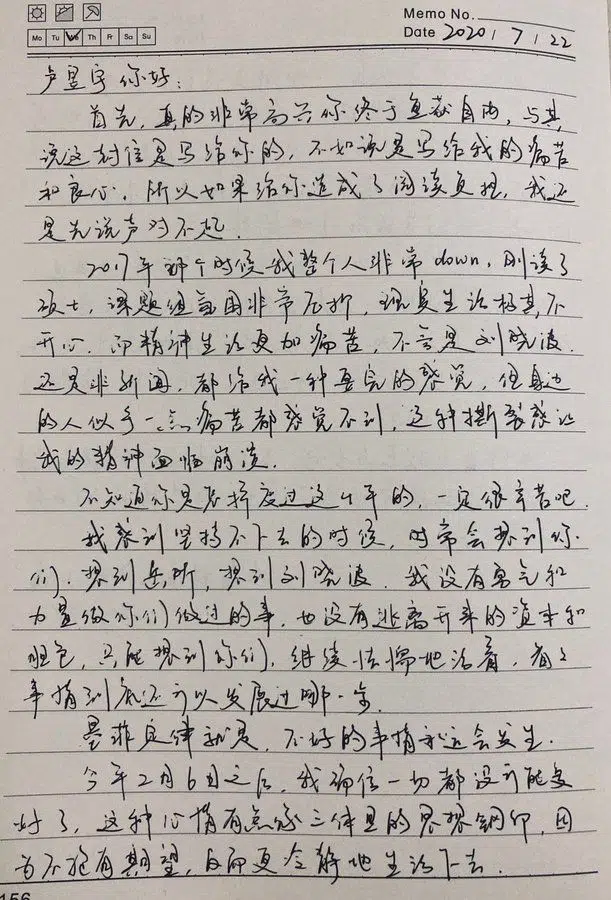 Memo No.
Mo Tu We Th Fr Sa Su
Date 2020 / 7 / 22
卢昱宇你好:
首先,真的非常高兴你终于重获自由,与其
说这封信是写给你的,不如说是写给我的痛苦
和良心,所以如果给你造成了阅读负担,我还
是先说声对不起.
2017年那个时候我整个人非常down,刚读了
硕士,课题组氛围非常压抑,现实生活极其不
开心,而精神生活更加痛苦,不管是刘晓波
还是非新闻,都给我一种要完的感觉,但身边
的人似乎一点痛苦都感觉不到,这种撕裂感让
我的精神面临崩溃.
不知道你是怎样度过这4年的,一定很辛苦吧.
我感到坚持不下去的时候,时常会想到你
们,想到岳昕,想到刘晓波.我没有勇气和
力量做你们做过的事,也没有逃离开来的资本和
胆色,只能想到你们,继续怯懦地活着,看看
事情到底还可以发展过哪一步.
墨菲定律就是,不好的事情永远会发生.
今年2月6日之后,我确信一切都没可能变
好了,这种心情有点像三体里的思想钢印,因
为不抱有期望,反而更冷静地生活下去.
156